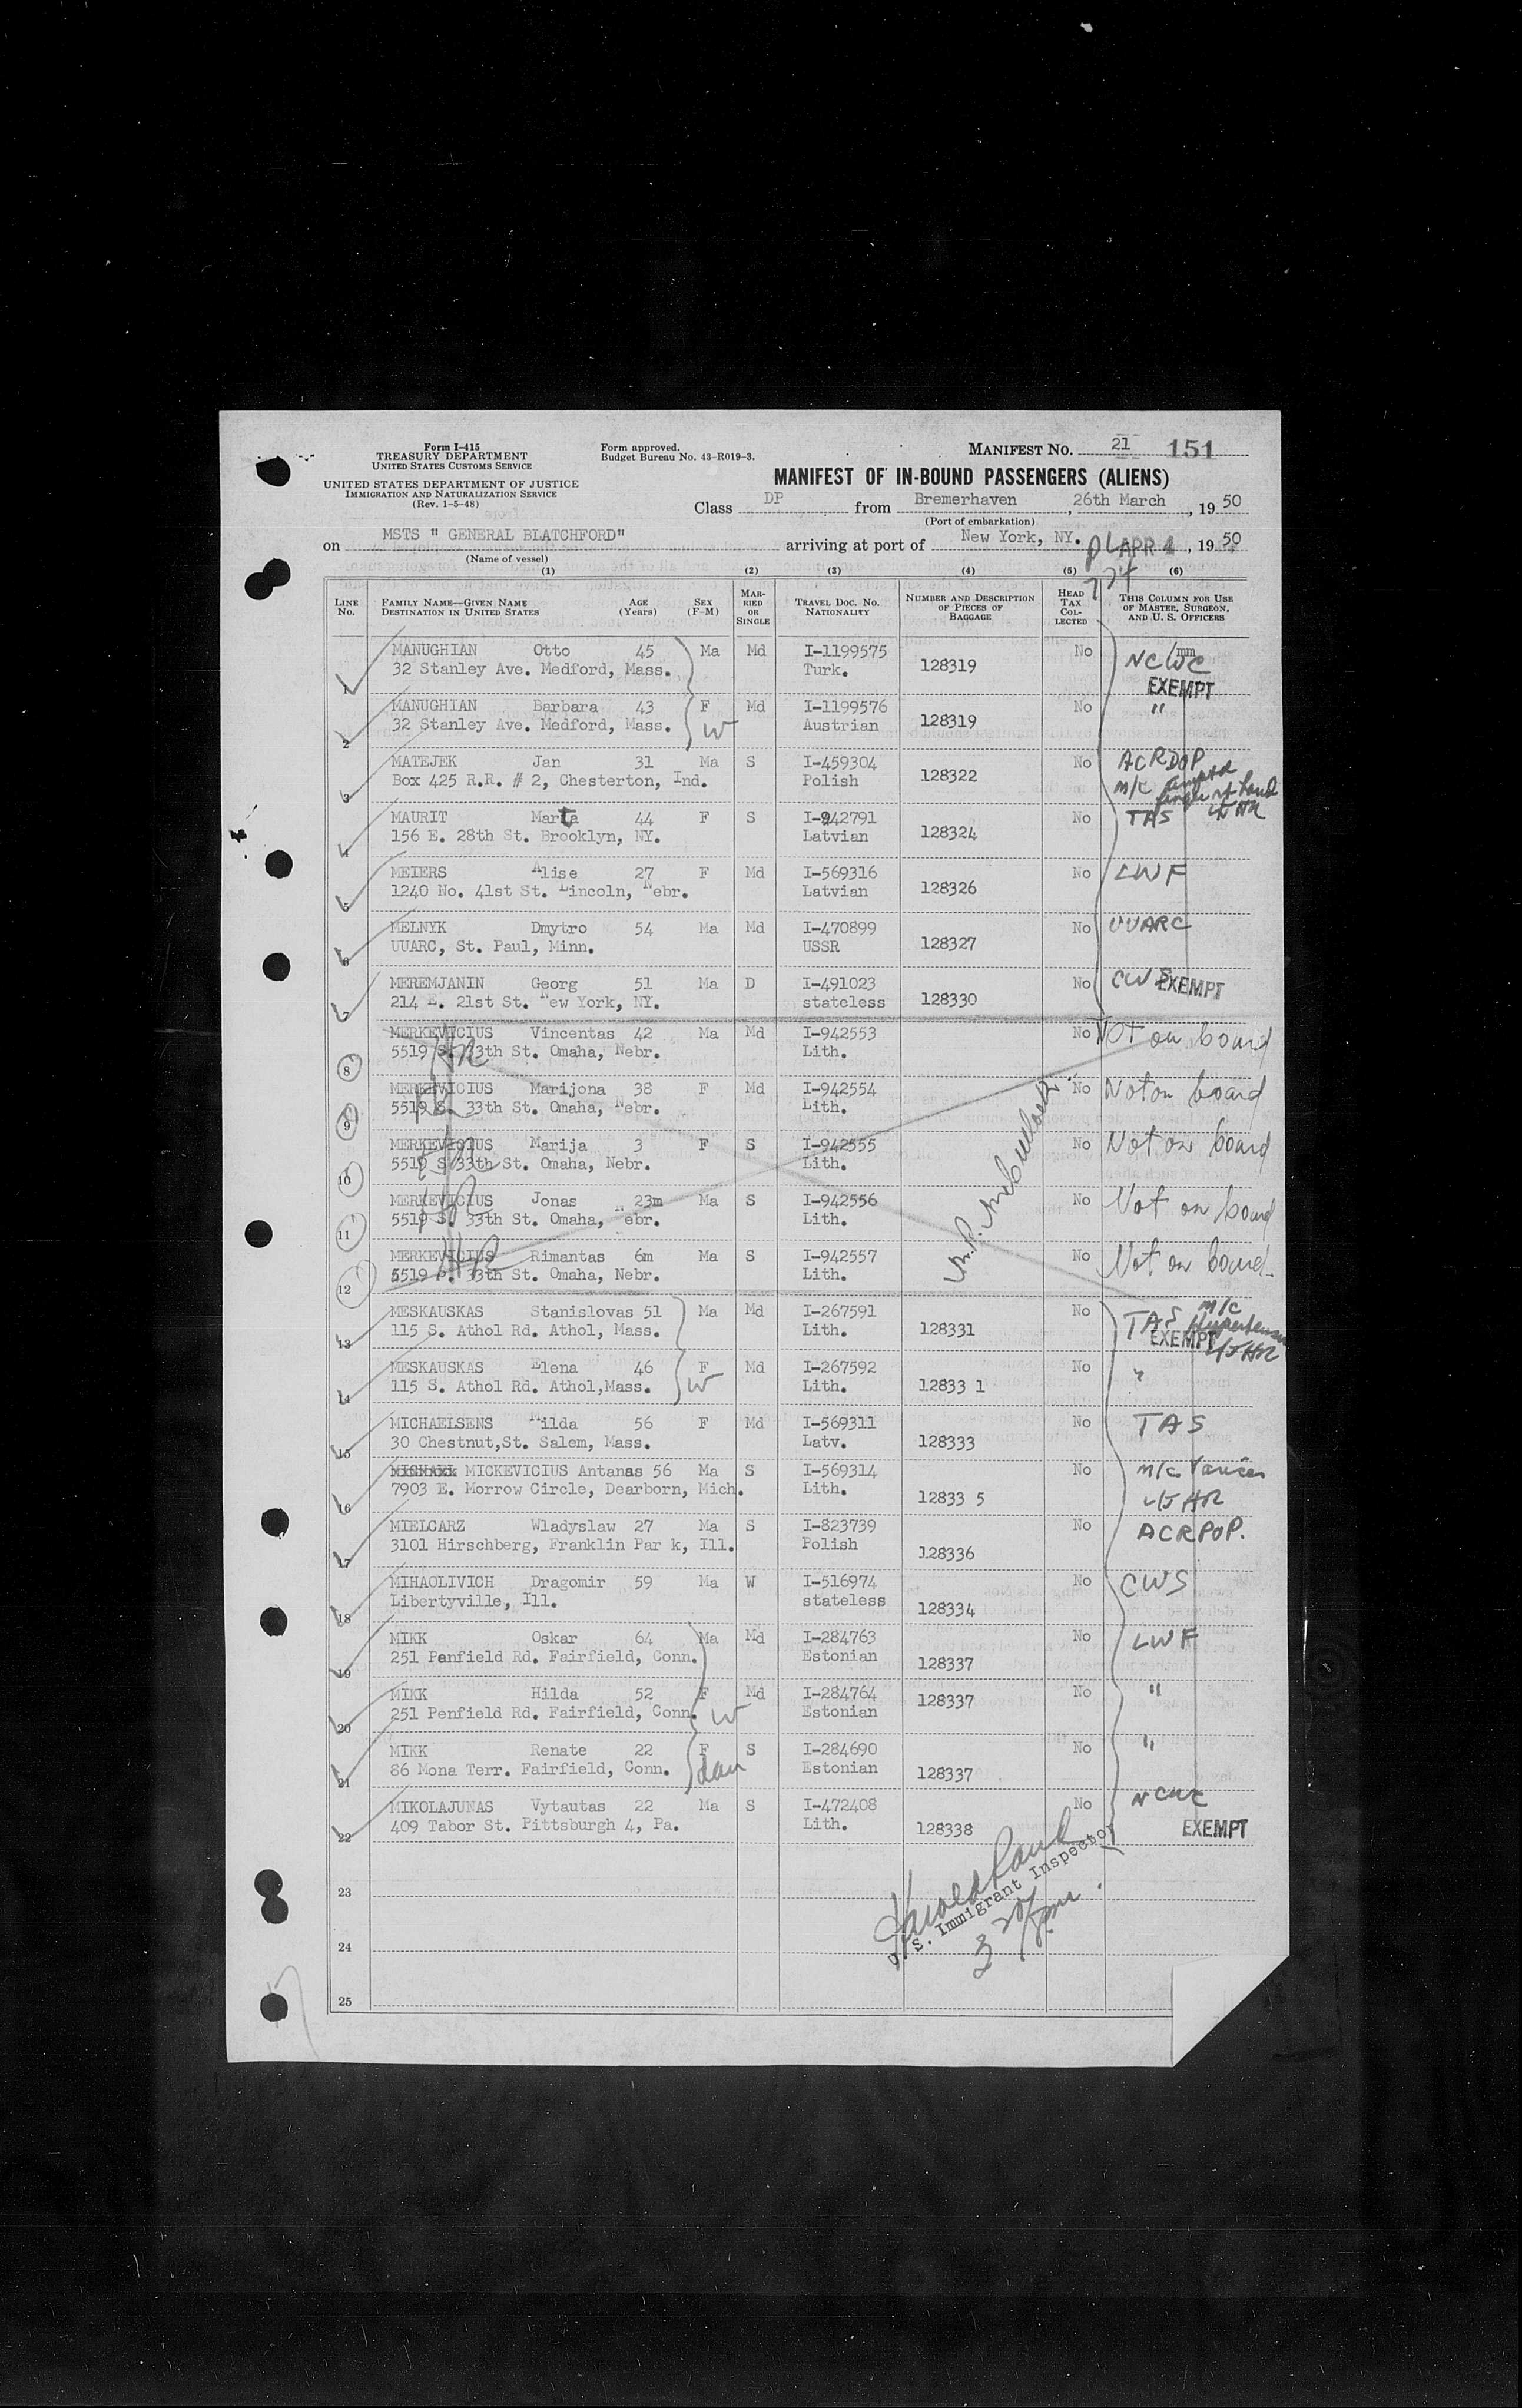 Form I-415
TREASURY DEPARTMENT
UNITED STATES CUSTOMS SERVICE
UNITED STATES DEPARTMENT OF JUSTICE
IMMIGRATION AND NATURALIZATION SERVICE
(Rev. 1-5-48)
Form approved.
Budget Bureau No. 43-R019-3.
MANIFEST NO. 21 151
MANIFEST OF IN-BOUND PASSENGERS (ALIENS)
Class DP from Bremerhaven, 26th March, 1950
(Port of embarkation)
on MSTS " GENERAL BLATCHFORD" arriving at port of New York, NY. APR 4, 1950
(Name of vessel)
(1) (2) (3) (4) (5) (6)
LINE NO. FAMILY NAME—GIVEN NAME DESTINATION IN UNITED STATES AGE (YEARS) SEX (F-M) MARRIED OR SINGLE TRAVEL DOC. NO. NATIONALITY NUMBER AND DESCRIPTION OF PIECES OF BAGGAGE HEAD TAX COLLECTED THIS COLUMN FOR USE OF MASTER, SURGEON, AND U. S. OFFICERS
1 MANUGHIAN Otto 45 Ma Md I-1199575 128319 No NCWC
32 Stanley Ave. Medford, Mass. Turk. EXEMPT
2 MANUGHIAN Barbara 43 F Md I-1199576 128319 No "
32 Stanley Ave. Medford, Mass. W Austrian
3 MATEJEK Jan 31 Ma S I-459304 128322 No ACRDOP
Box 425 R.R. # 2, Chesterton, Ind. Polish M/C
4 MAURIT Marta 44 F S I-942791 128324 No TAS
156 E. 28th St. Brooklyn, NY. Latvian
5 MEIERS Alise 27 F Md I-569316 128326 No LWF
1240 No. 41st St. Lincoln, Nebr. Latvian
6 MELNYK Dmytro 54 Ma Md I-470899 128327 No UUARC
UUARC, St. Paul, Minn. USSR
7 MEREMJANIN Georg 51 Ma D I-491023 128330 No CWS EXEMPT
214 E. 21st St. New York, NY. stateless
8 MERKEVICIUS Vincentas 42 Ma Md I-942553 No Not on board
5519 S. 33th St. Omaha, Nebr. Lith.
9 MERKEVICIUS Marijona 38 F Md I-942554 No Not on board
5519 S. 33th St. Omaha, Nebr. Lith.
10 MERKEVICIUS Marija 3 F S I-942555 No Not on board
5519 S 33th St. Omaha, Nebr. Lith.
11 MERKEVICIUS Jonas 23m Ma S I-942556 No Not on board
5519 S. 33th St. Omaha, Nebr. Lith.
12 MERKEVICIUS Rimantas 6m Ma S I-942557 No Not on board
5519 S. 33th St. Omaha, Nebr. Lith.
13 MESKAUSKAS Stanislovas 51 Ma Md I-267591 128331 No TAS M/C Hypertension
115 S. Athol Rd. Athol, Mass. Lith. EXEMPT
14 MESKAUSKAS Elena 46 F Md I-267592 12833 1 No "
115 S. Athol Rd. Athol,Mass. W Lith.
15 MICHAELSENS Milda 56 F Md I-569311 128333 No TAS
30 Chestnut,St. Salem, Mass. Latv.
16 MICKEVICIUS Antanas 56 Ma S I-569314 12833 5 No M/C
7903 E. Morrow Circle, Dearborn, Mich. Lith.
17 MIELCARZ Wladyslaw 27 Ma S I-823739 128336 No ACRPOP.
3101 Hirschberg, Franklin Par k, Ill. Polish
18 MIHAOLIVICH Dragomir 59 Ma W I-516974 128334 No CWS
Libertyville, Ill. stateless
19 MIKK Oskar 64 Ma Md I-284763 128337 No LWF
251 Penfield Rd. Fairfield, Conn. Estonian
20 MIKK Hilda 52 F Md I-284764 128337 No "
251 Penfield Rd. Fairfield, Conn. W Estonian
21 MIKK Renate 22 F S I-284690 128337 No "
86 Mona Terr. Fairfield, Conn. dau Estonian
22 MIKOLAJUNAS Vytautas 22 Ma S I-472408 128338 No NCWC
409 Tabor St. Pittsburgh 4, Pa. Lith. EXEMPT
23
24
25
Harold
U. S. Immigrant Inspector